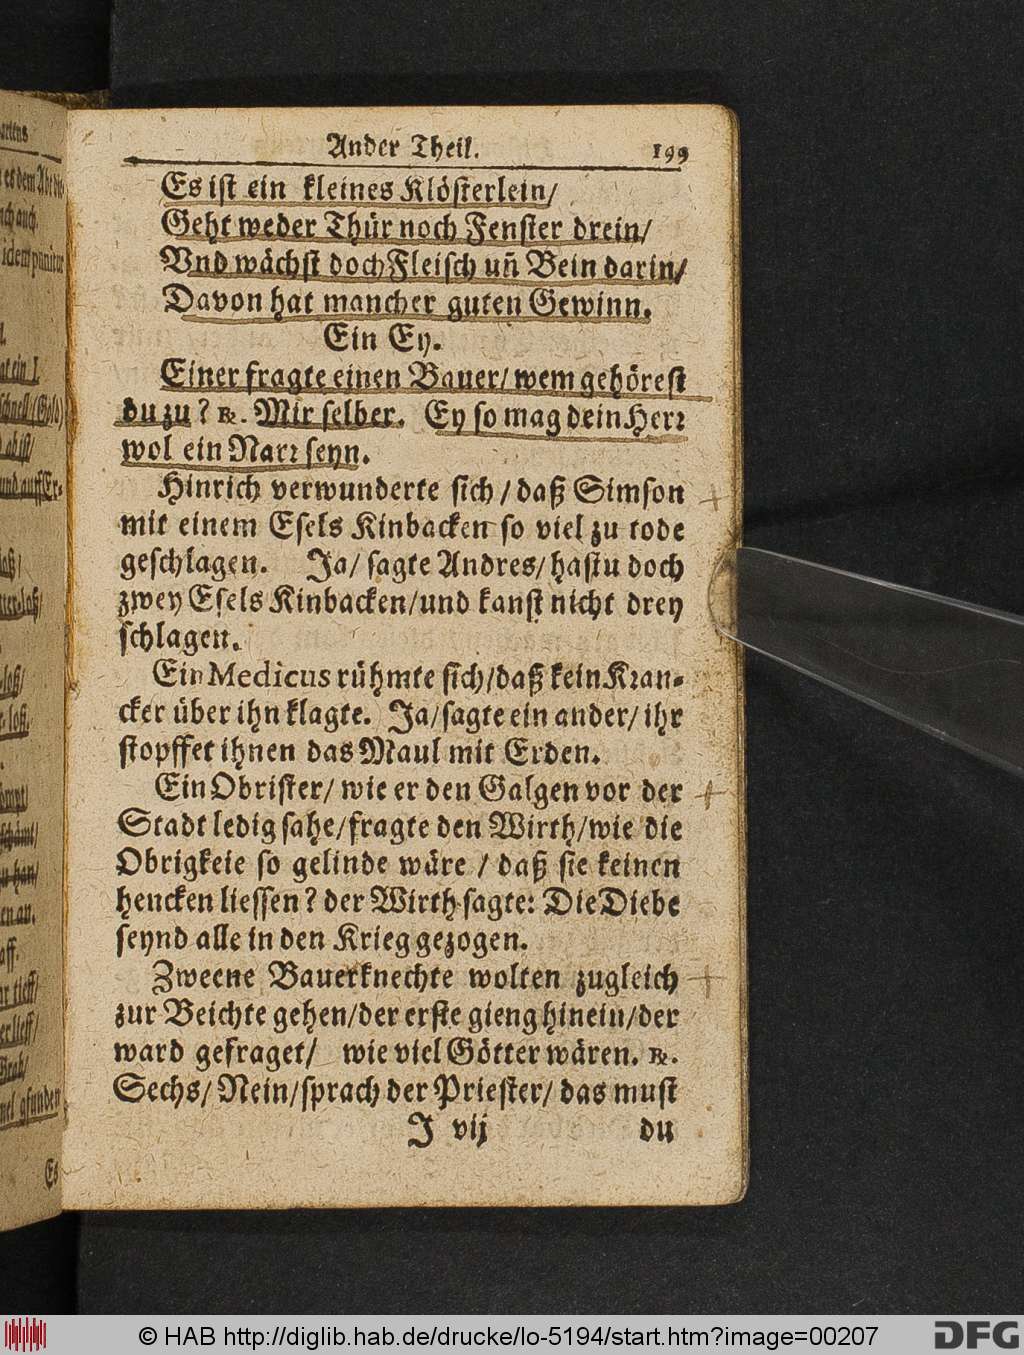 Ander Theil. 199
Es ist ein kleines Klösterlein/
Geht weder Thür noch Fenster drein/
Vnd wächst doch Fleisch uñ Bein darin/
Davon hat mancher guten Gewinn.
Ein Ey.
Einer fragte einen Bauer/ wem gehörest
du zu? ℞. Mir selber. Ey so mag dein Herꝛ
wol ein Narꝛ seyn.
Hinrich verwunderte sich/ daß Simson
mit einem Esels Kinbacken so viel zu tode
geschlagen. Ja/ sagte Andres/ hastu doch
zwey Esels Kinbacken/und kanst nicht drey
schlagen.
Ein Medicus rühmte sich/daß kein Kran-
cker über ihn klagte. Ja/sagte ein ander/ ihr
stopffet ihnen das Maul mit Erden.
Ein Obrister/ wie er den Galgen vor der
Stadt ledig sahe/fragte den Wirth/wie die
Obrigkeie so gelinde wäre / daß sie keinen
hencken liessen? der Wirth sagte: Die Diebe
seynd alle in den Krieg gezogen.
Zweene Bauerknechte wolten zugleich
zur Beichte gehen/der erste gieng hinein/der
ward gefraget/ wie viel Götter wären. ℞.
Sechs/ Nein/sprach der Priester/ das must
J vij du
Es
© HAB http://diglib.hab.de/drucke/lo-5194/start.htm?image=00207
DFG